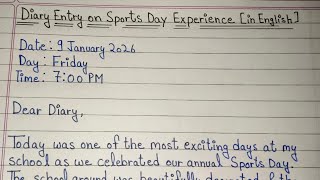 Diary Entry on Sports Day Experience [in English]
Date: 9 January 2026
Day: Friday
Time: 7:00 PM
Dear Diary,
Today was one of the most exciting days at my
school as we celebrated our annual Sports Day.
The school ground was beautifully decorated